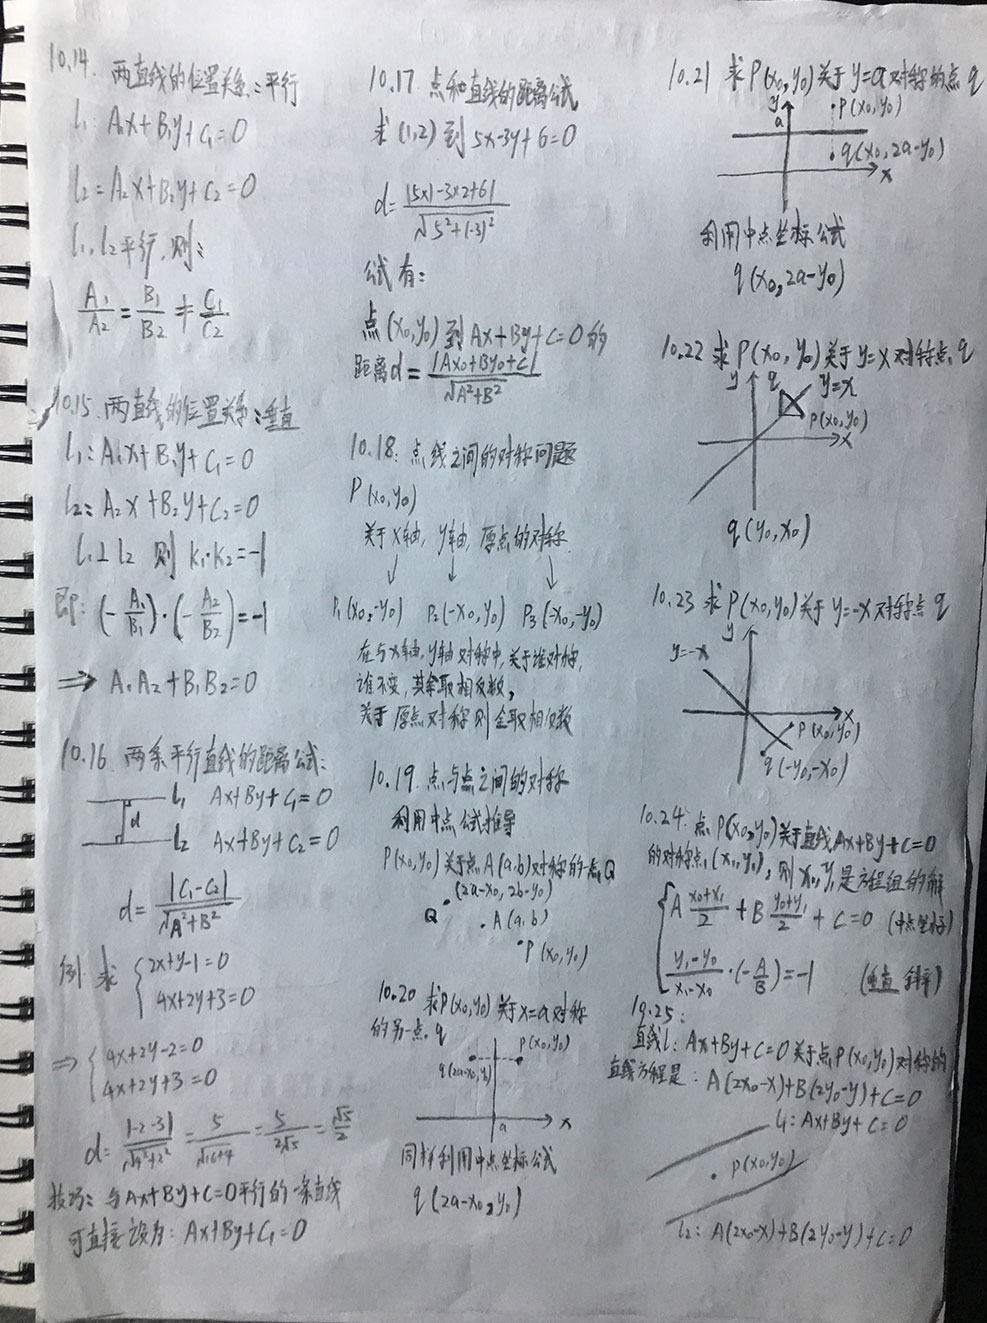 10.14. 两直线的位置关系:平行
l₁: A₁x+B₁y+C₁=0
l₂=A₂x+B₂y+C₂=0
l₁,l₂平行,则:
A₁/A₂=B₁/B₂≠C₁/C₂.
10.15.两直线的位置关系:垂直
l₁: A₁x+B₁y+C₁=0
l₂: A₂x+B₂y+C₂=0
l₁⊥l₂ 则 k₁·k₂=-1
即: (-A₁/B₁)·(-A₂/B₂)=-1
⇒ A₁A₂+B₁B₂=0
10.16. 两条平行直线的距离公式:
l₁ Ax+By+C₁=0
d
l₂ Ax+By+C₂=0
d=|C₁-C₂|/√A²+B²
例 求 {2x+y-1=0
4x+2y+3=0
⇒ {4x+2y-2=0
4x+2y+3=0
d=|-2-3|/√4²+2²=5/√16+4=5/2√5=√5/2
技巧:与Ax+By+C=0平行的一条直线
可直接设为: Ax+By+C₁=0
10.17 点和直线的距离公式
求(1,2)到5x-3y+6=0
d=|5×1-3×2+6|/√5²+(-3)²
公式有:
点(x₀,y₀)到Ax+By+C=0的
距离d=|Ax₀+By₀+C|/√A²+B²
10.18: 点线之间的对称问题
P(x₀,y₀)
关于x轴, y轴, 原点的对称
↓ ↓ ↓
P₁(x₀,-y₀) P₂(-x₀,y₀) P₃(-x₀,-y₀)
在与x轴,y轴对称中,关于谁对称,
谁不变,其余取相反数,
关于原点对称则全取相反数
10.19.点与点之间的对称
利用中点公式推导
P(x₀,y₀)关于点A(a,b)对称的点Q
(2a-x₀,2b-y₀)
Q
A(a,b)
P(x₀,y₀)
10.20 求P(x₀,y₀)关于x=a对称
的另一点q
P(x₀,y₀)
q(2a-x₀,y₀)
a x
同样利用中点坐标公式
q(2a-x₀,y₀)
10.21 求P(x₀,y₀)关于y=a对称的点q
y P(x₀,y₀)
a
q(x₀,2a-y₀)
x
利用中点坐标公式
q(x₀,2a-y₀)
10.22 求P(x₀,y₀)关于y=x对称点q
y q y=x
P(x₀,y₀)
x
q(y₀,x₀)
10.23 求P(x₀,y₀)关于y=-x对称点q
y
y=-x
x
P(x₀,y₀)
q(-y₀,-x₀)
10.24:点P(x₀,y₀)关于直线Ax+By+C=0
的对称点(x₁,y₁),则x₁,y₁是方程组的解
{A x₀+x₁/2+B y₀+y₁/2+C=0 (中点坐标)
y₁-y₀/x₁-x₀·(-A/B)=-1 (垂直 斜率)
10.25:
直线l: Ax+By+C=0关于点P(x₀,y₀)对称的
直线方程是: A(2x₀-x)+B(2y₀-y)+C=0
l₁: Ax+By+C=0
P(x₀,y₀)
l₂: A(2x₀-x)+B(2y₀-y)+C=0